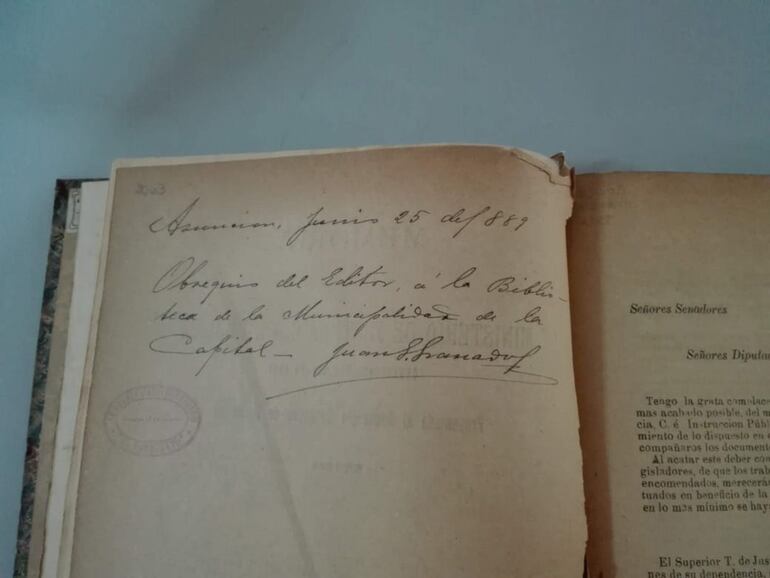 Asuncion, Junio 25 de 1889
Obsequio del Editor, á la Biblio-
teca de la Municipalidad de la
Capital— Juan S. Granados
Señores Senadores
Señores Diputa
Tengo la grata complace
mas acabado posible, del m
cia, C. é Instruccion Públ
miento de lo dispuesto en
compañaros los document
Al acatar este deber con
gisladores, de que los trab
encomendados, merecerán
tuados en beneficio de la
en lo mas mínimo se hay
El Superior T. de Jus
nes de su dependencia,